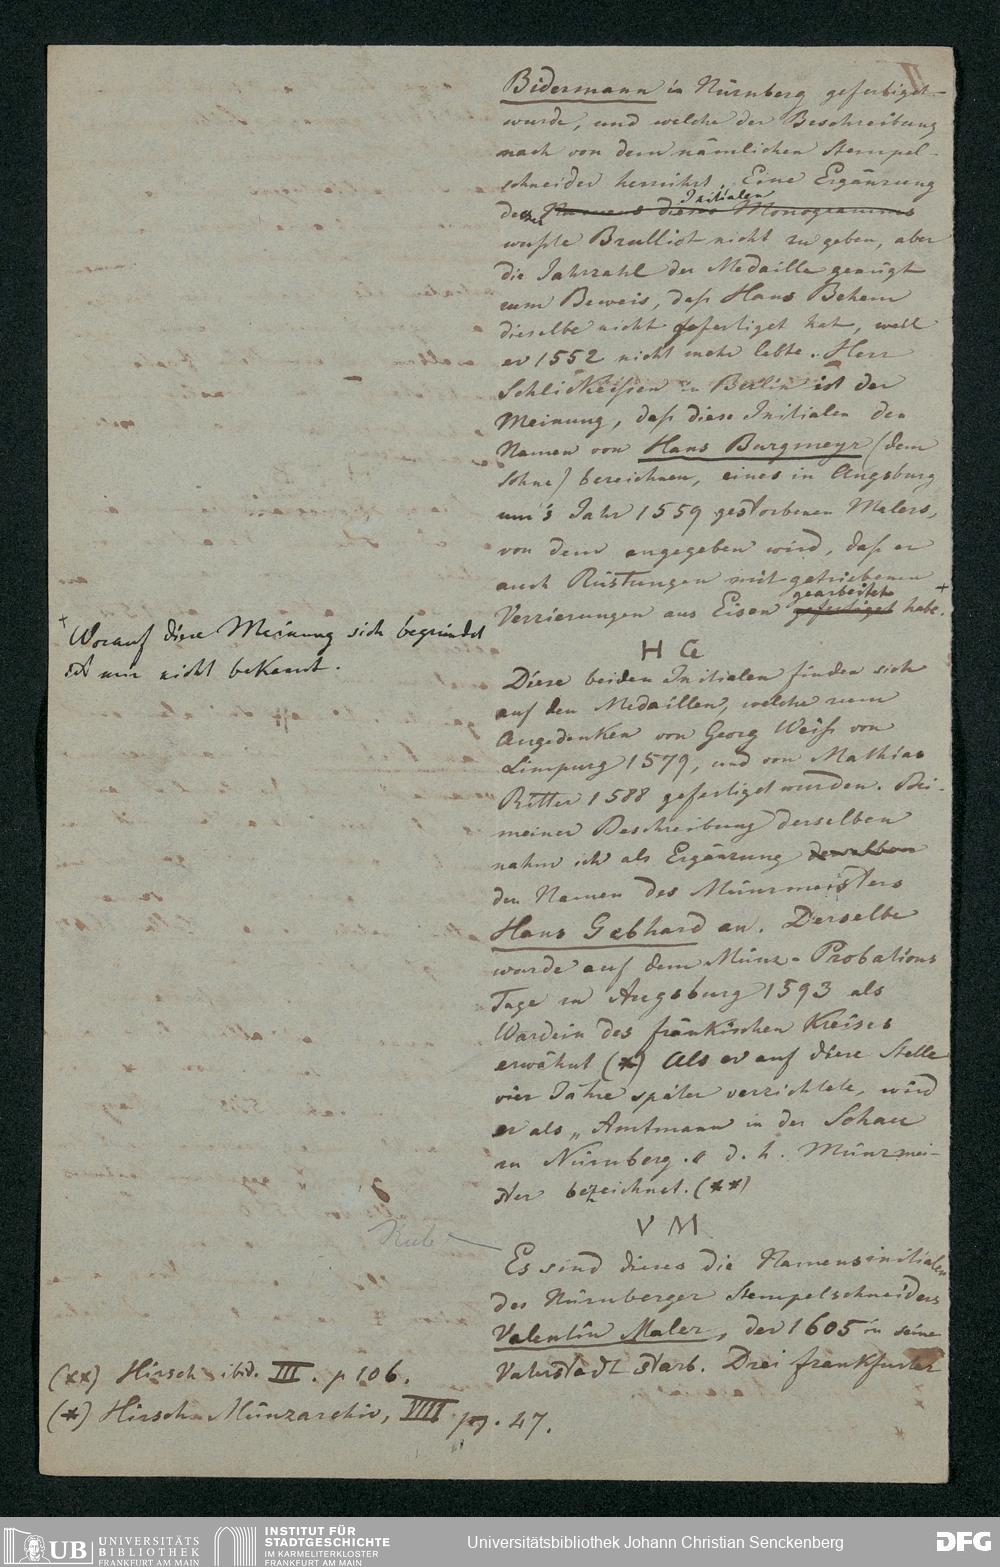 Bidermann in Nürnberg gefertiget
wurde, und welche der Beschreibung
nach von dem nämlichen Stempel-
schneider herrührt. Eine Ergänzung
dieser Initialen
Namens dieses Monogramms
wußte Brulliot nicht zu geben, aber
die Jahrzahl der Medaille genügt
zum Beweis, daß Hans Behem
dieselbe nicht gefertiget hat, weil
er 1552 nicht mehr lebte. Herr
Schlickeisen in Berlin ist der
Meinung, daß diese Initialen den
Namen von Hans Burgmeyr (dem
Sohne) bezeichnen, eines in Augsburg
um's Jahr 1559 gestorbenen Malers,
von dem angegeben wird, daß er
auch Rüstungen mit getriebenen
gearbeitet +
Verzierungen aus Eisen gefertiget habe.
+ Worauf diese Meinung sich begründet
ist mir nicht bekannt.
H G
Diese beiden Initialen finden sich
auf den Medaillen, welche zum
Angedenken von Georg Weiß von
Limpurg 1579, und von Mathias
Ritter 1588 gefertiget wurden. Bei
meiner Beschreibung derselben
nahm ich als Ergänzung derselben
den Namen des Münzmeisters
Hans Gebhard an. Derselbe
wurde auf dem Münz-Probations
Tage zu Augsburg 1593 als
Wardein des fränkischen Kreises
erwähnt (*) Als er auf diese Stelle
vier Jahre später verzichtete, wird
er als „Amtmann in der Schau
zu Nürnberg" d. h. Münzmei-
ster bezeichnet. (**)
V M
Es sind dieses die Namensinitialen
des Nürnberger Stempelschneiders
Valentin Maler, der 1605 in seiner
Vaterstadt starb. Drei Frankfurter
(**) Hirsch ibid. III. p 106.
(*) Hirsch Münzarchiv, VIII pg. 47.
UB UNIVERSITÄTS
BIBLIOTHEK
FRANKFURT AM MAIN
INSTITUT FÜR
STADTGESCHICHTE
IM KARMELITERKLOSTER
FRANKFURT AM MAIN
Universitätsbibliothek Johann Christian Senckenberg
DFG